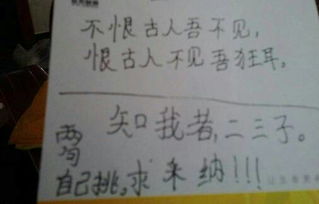 不恨古人吾不见，
恨古人不见吾狂耳。
知我者，二三子。
两句
自己挑，求采纳!!!